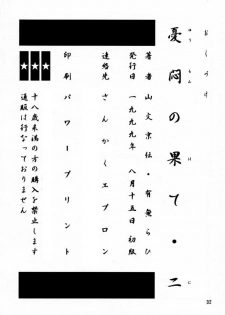 おくづけ
憂悶の果て・二
ゆうもん は に
著者 山文京伝・有無らひ
発行日 一九九九年 八月十五日 初版
連絡先 さんかくエプロン
印刷 パワープリント
★★★
十八歳未満の方の購入を禁止します
通販は行なっておりません
32